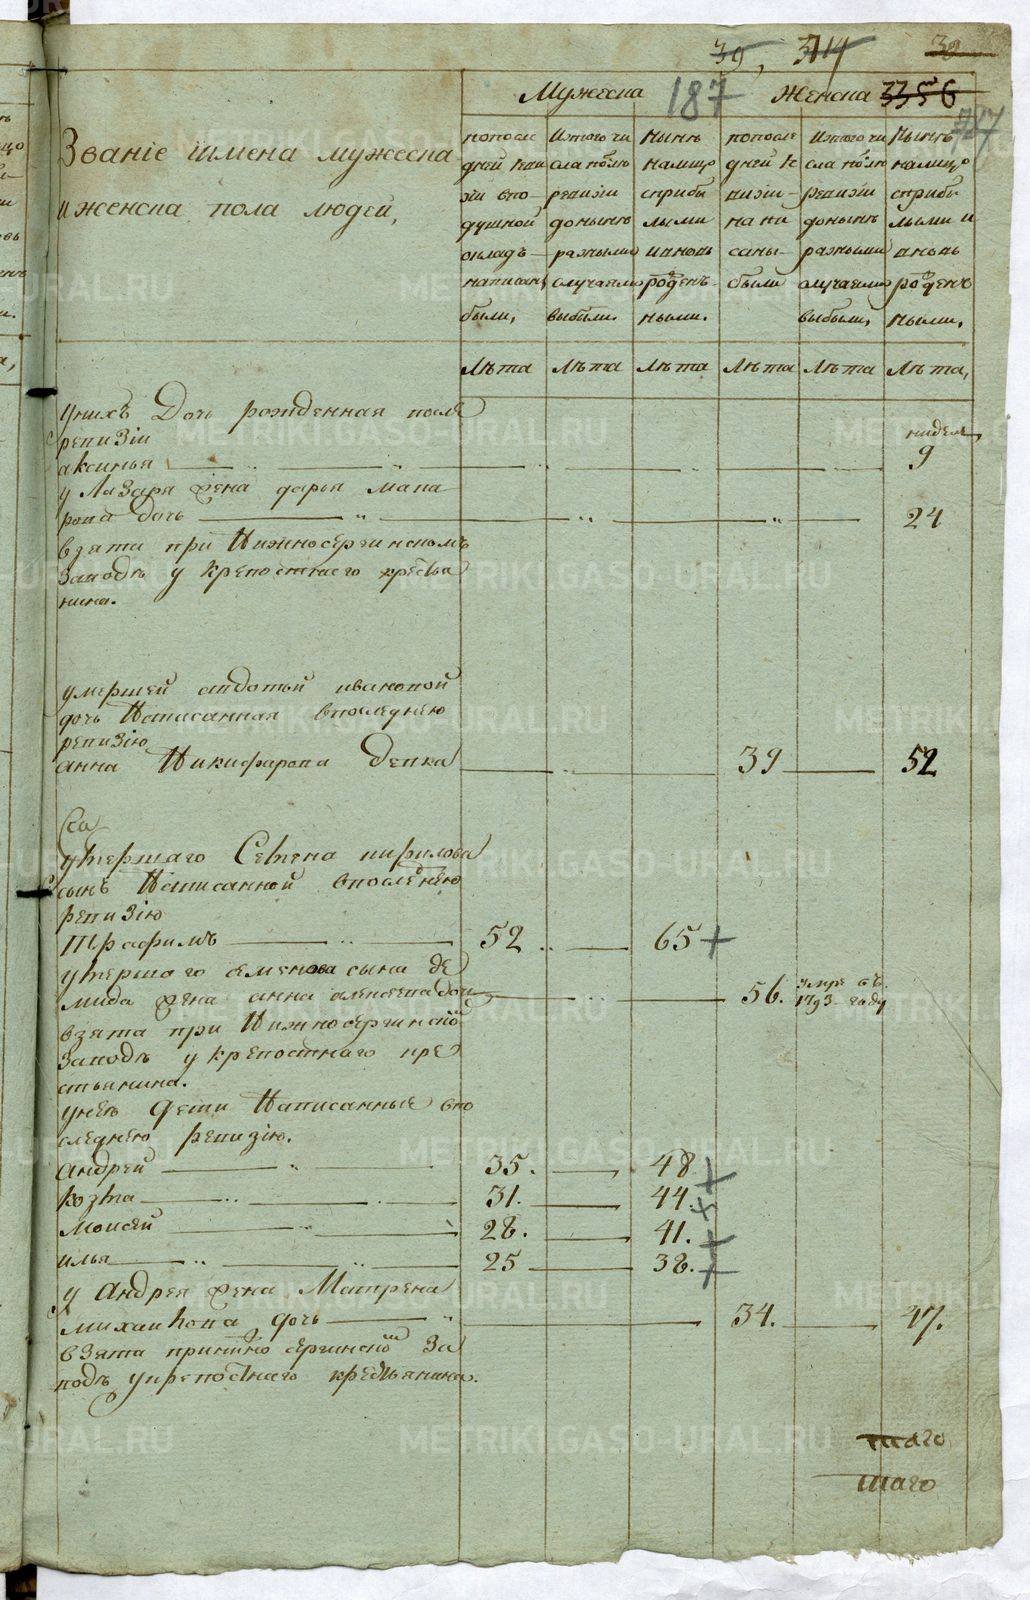 39, 314 38
Мужеска 187 Женска 3356
787
Званіе иимена мужеска
и женска пола людей,
попосле
дней реви
зіи впо
душной
окладъ
написаны
были,
Изтого чи
сла после
ревизіи
донынѣ
разными
случаями
выбыли.
нынѣ
налицо
сприбы
лыми
ивновь
рожденъ
ными.
попосле
дней ре
визіи
напи
саны
были
Изтого чи
сла после
ревизіи
донынѣ
разными
случаями
выбыли,
Нынѣ
налицо
сприбы
лыми и
вновь
рожденъ
ными,
Лѣта Лѣта Лѣта Лѣта Лѣта Лѣта,
унихъ Дочь рожденная после
ревизіи
недель
аксинья 9
у Лазаря жена дарья мака
рова дочь 24
взята при Нижносергинскомъ
заводѣ у крепостнаго крестья
нина.
умершей авдотьи ивановой
дочь Написанная впоследнею
ревизію
анна Никифорова девка 39 52
умершаго Семена кирилова
сынъ Написанной впоследнею
ревизію
Трафимъ 52 65 +
умершаго семенова сына де
мида жена анна алексеева дочь 56. умре въ
1793 году
взята при Нижносергинскомъ
Заводѣ у крепостнаго кре
стьянина.
унею Дети Написанные впо
следнею ревизію.
андрей 35. 48 +
козма 31. 44. +
моисей 28. 41. +
илья 25 38. +
у Андрея жена Матрена
михайлова дочь 34. 47.
взята принижно сергинскомъ За
водѣ укрепостнаго крестьянина.
итаго
итаго
METRIKI.GASO-URAL.RU